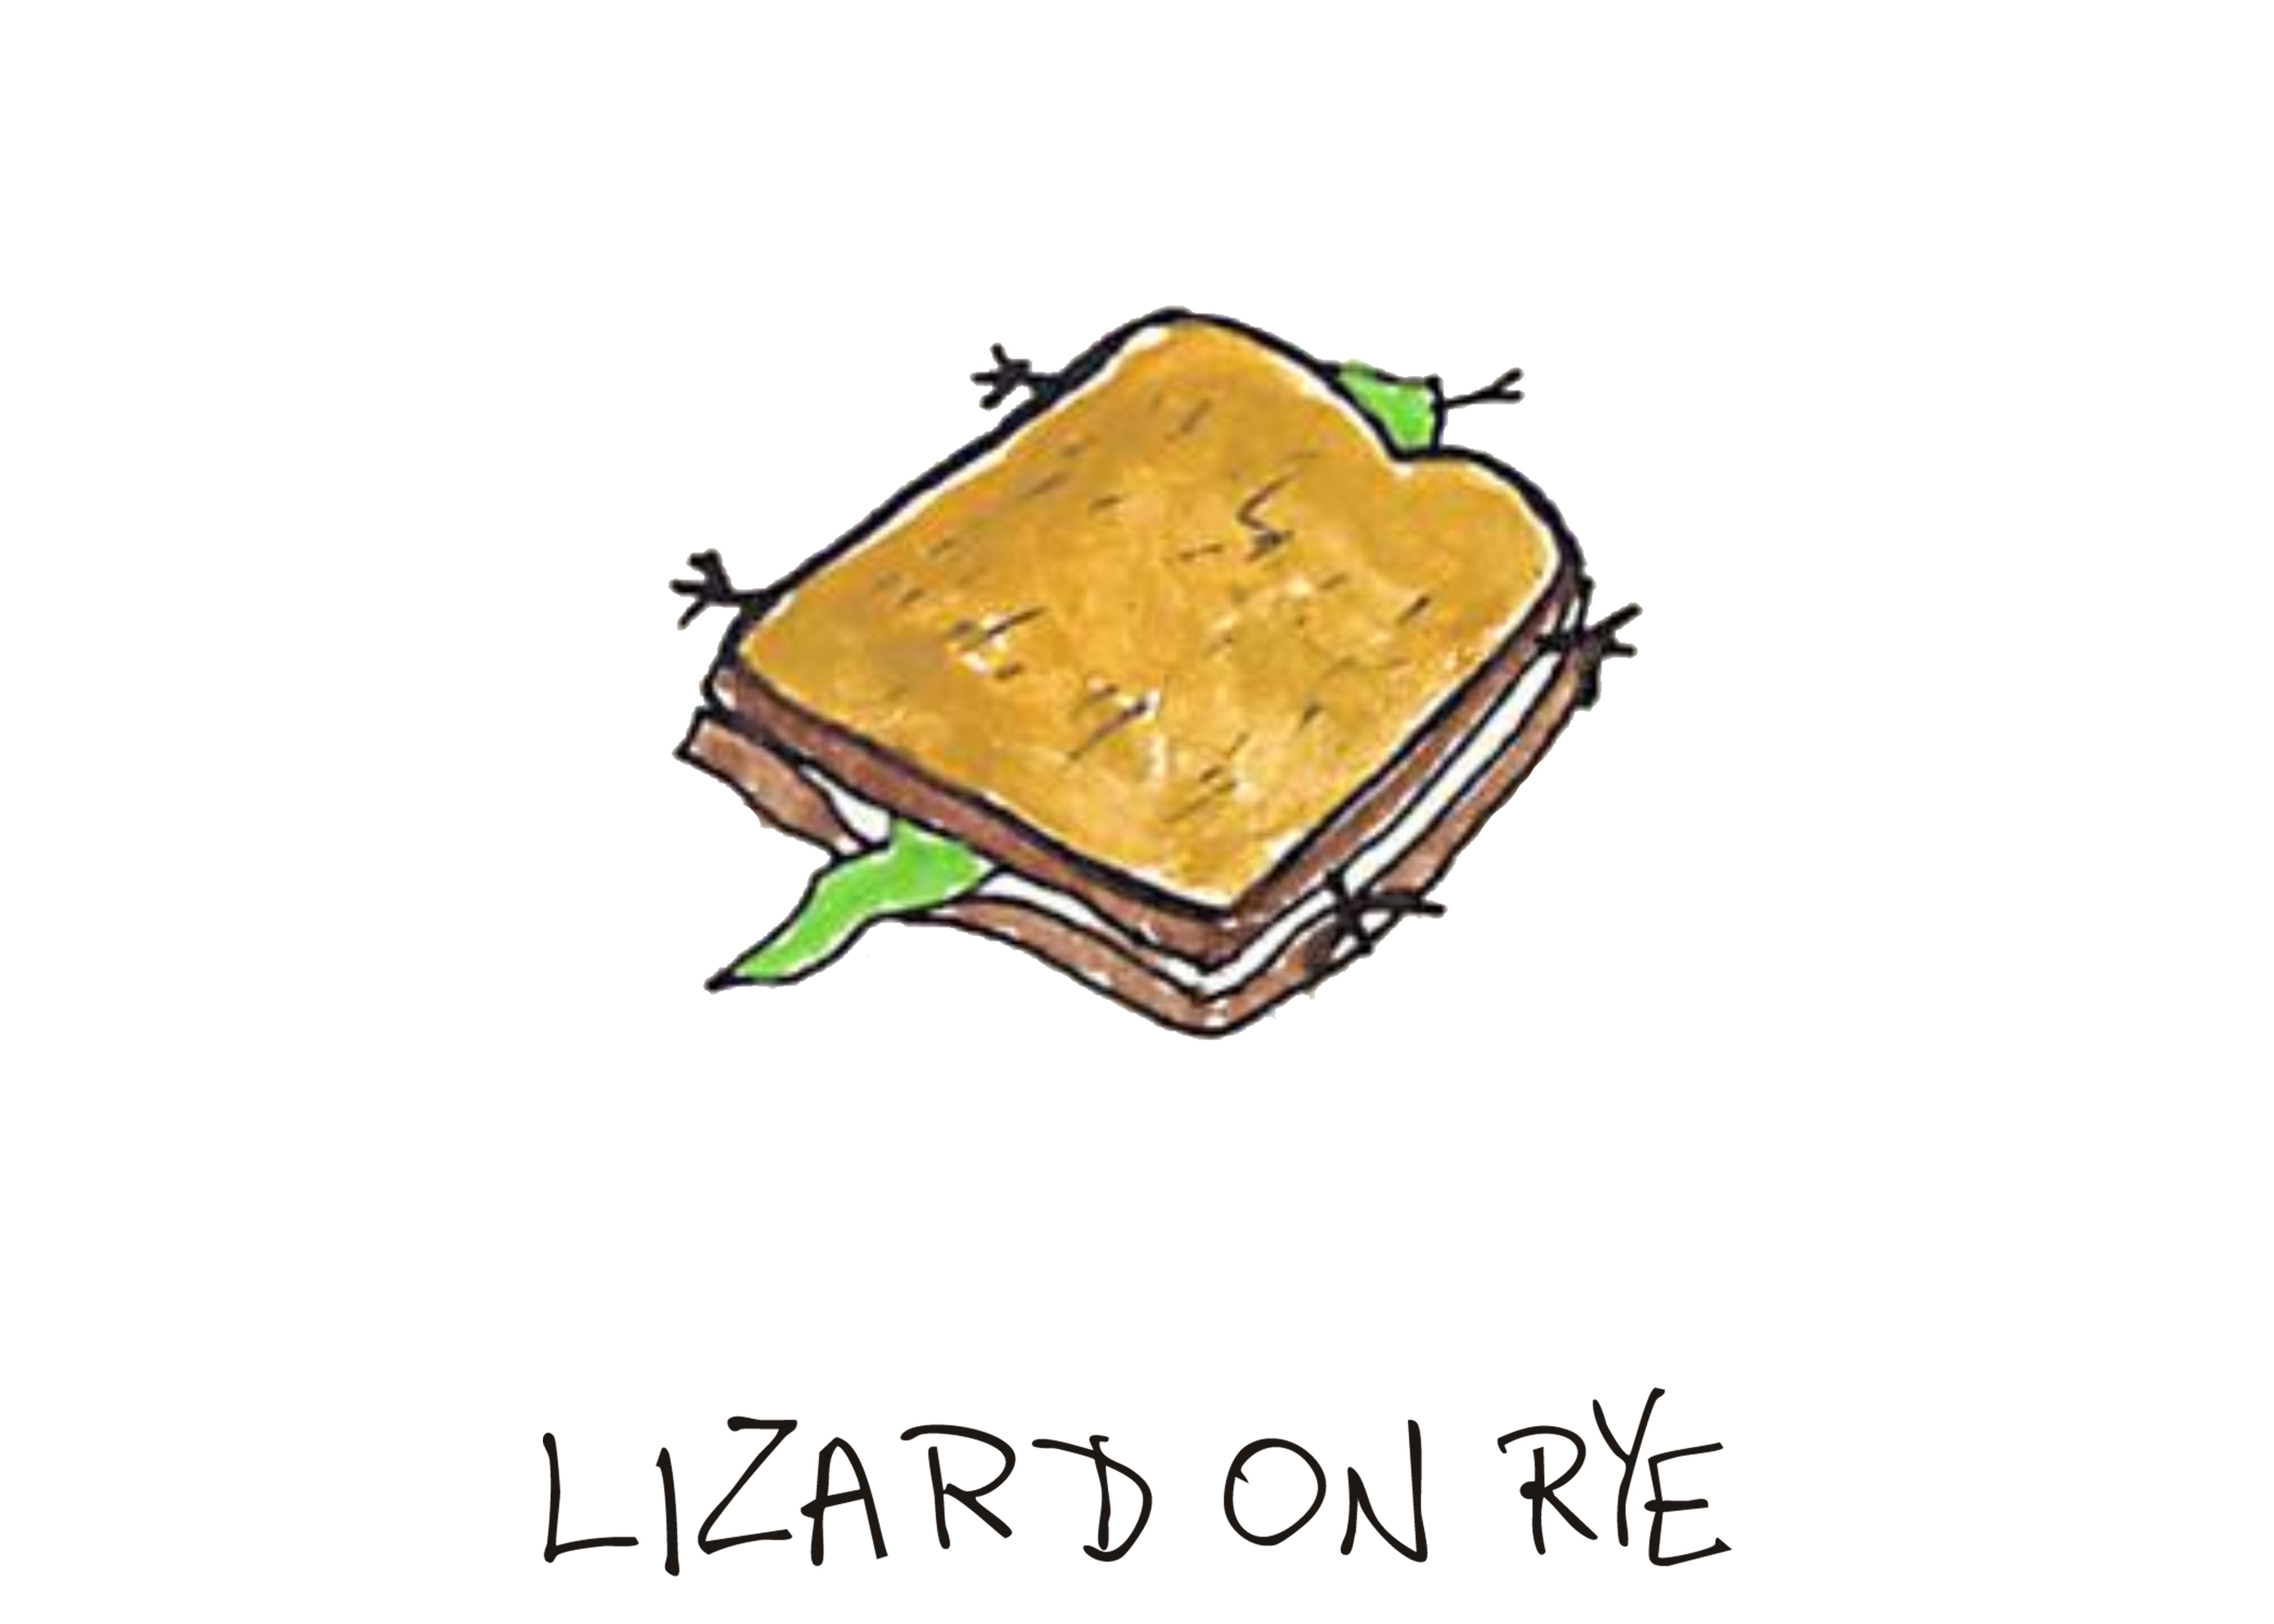 LIZARD ON RYE